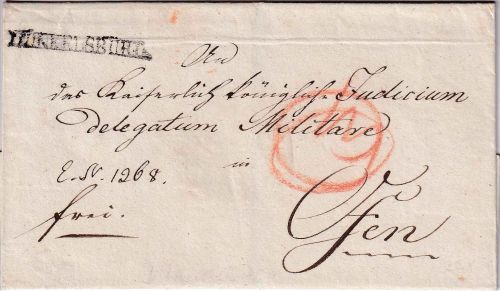 An
das Kaiserlich königliche Judicium
delegatum Militare
in
E. N. 1268.
frei.
Ofen